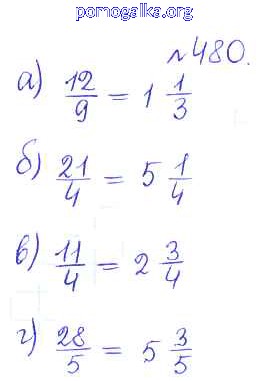 pomogalka.org
№480.
а) 12/9 = 1 1/3
б) 21/4 = 5 1/4
в) 11/4 = 2 3/4
г) 28/5 = 5 3/5